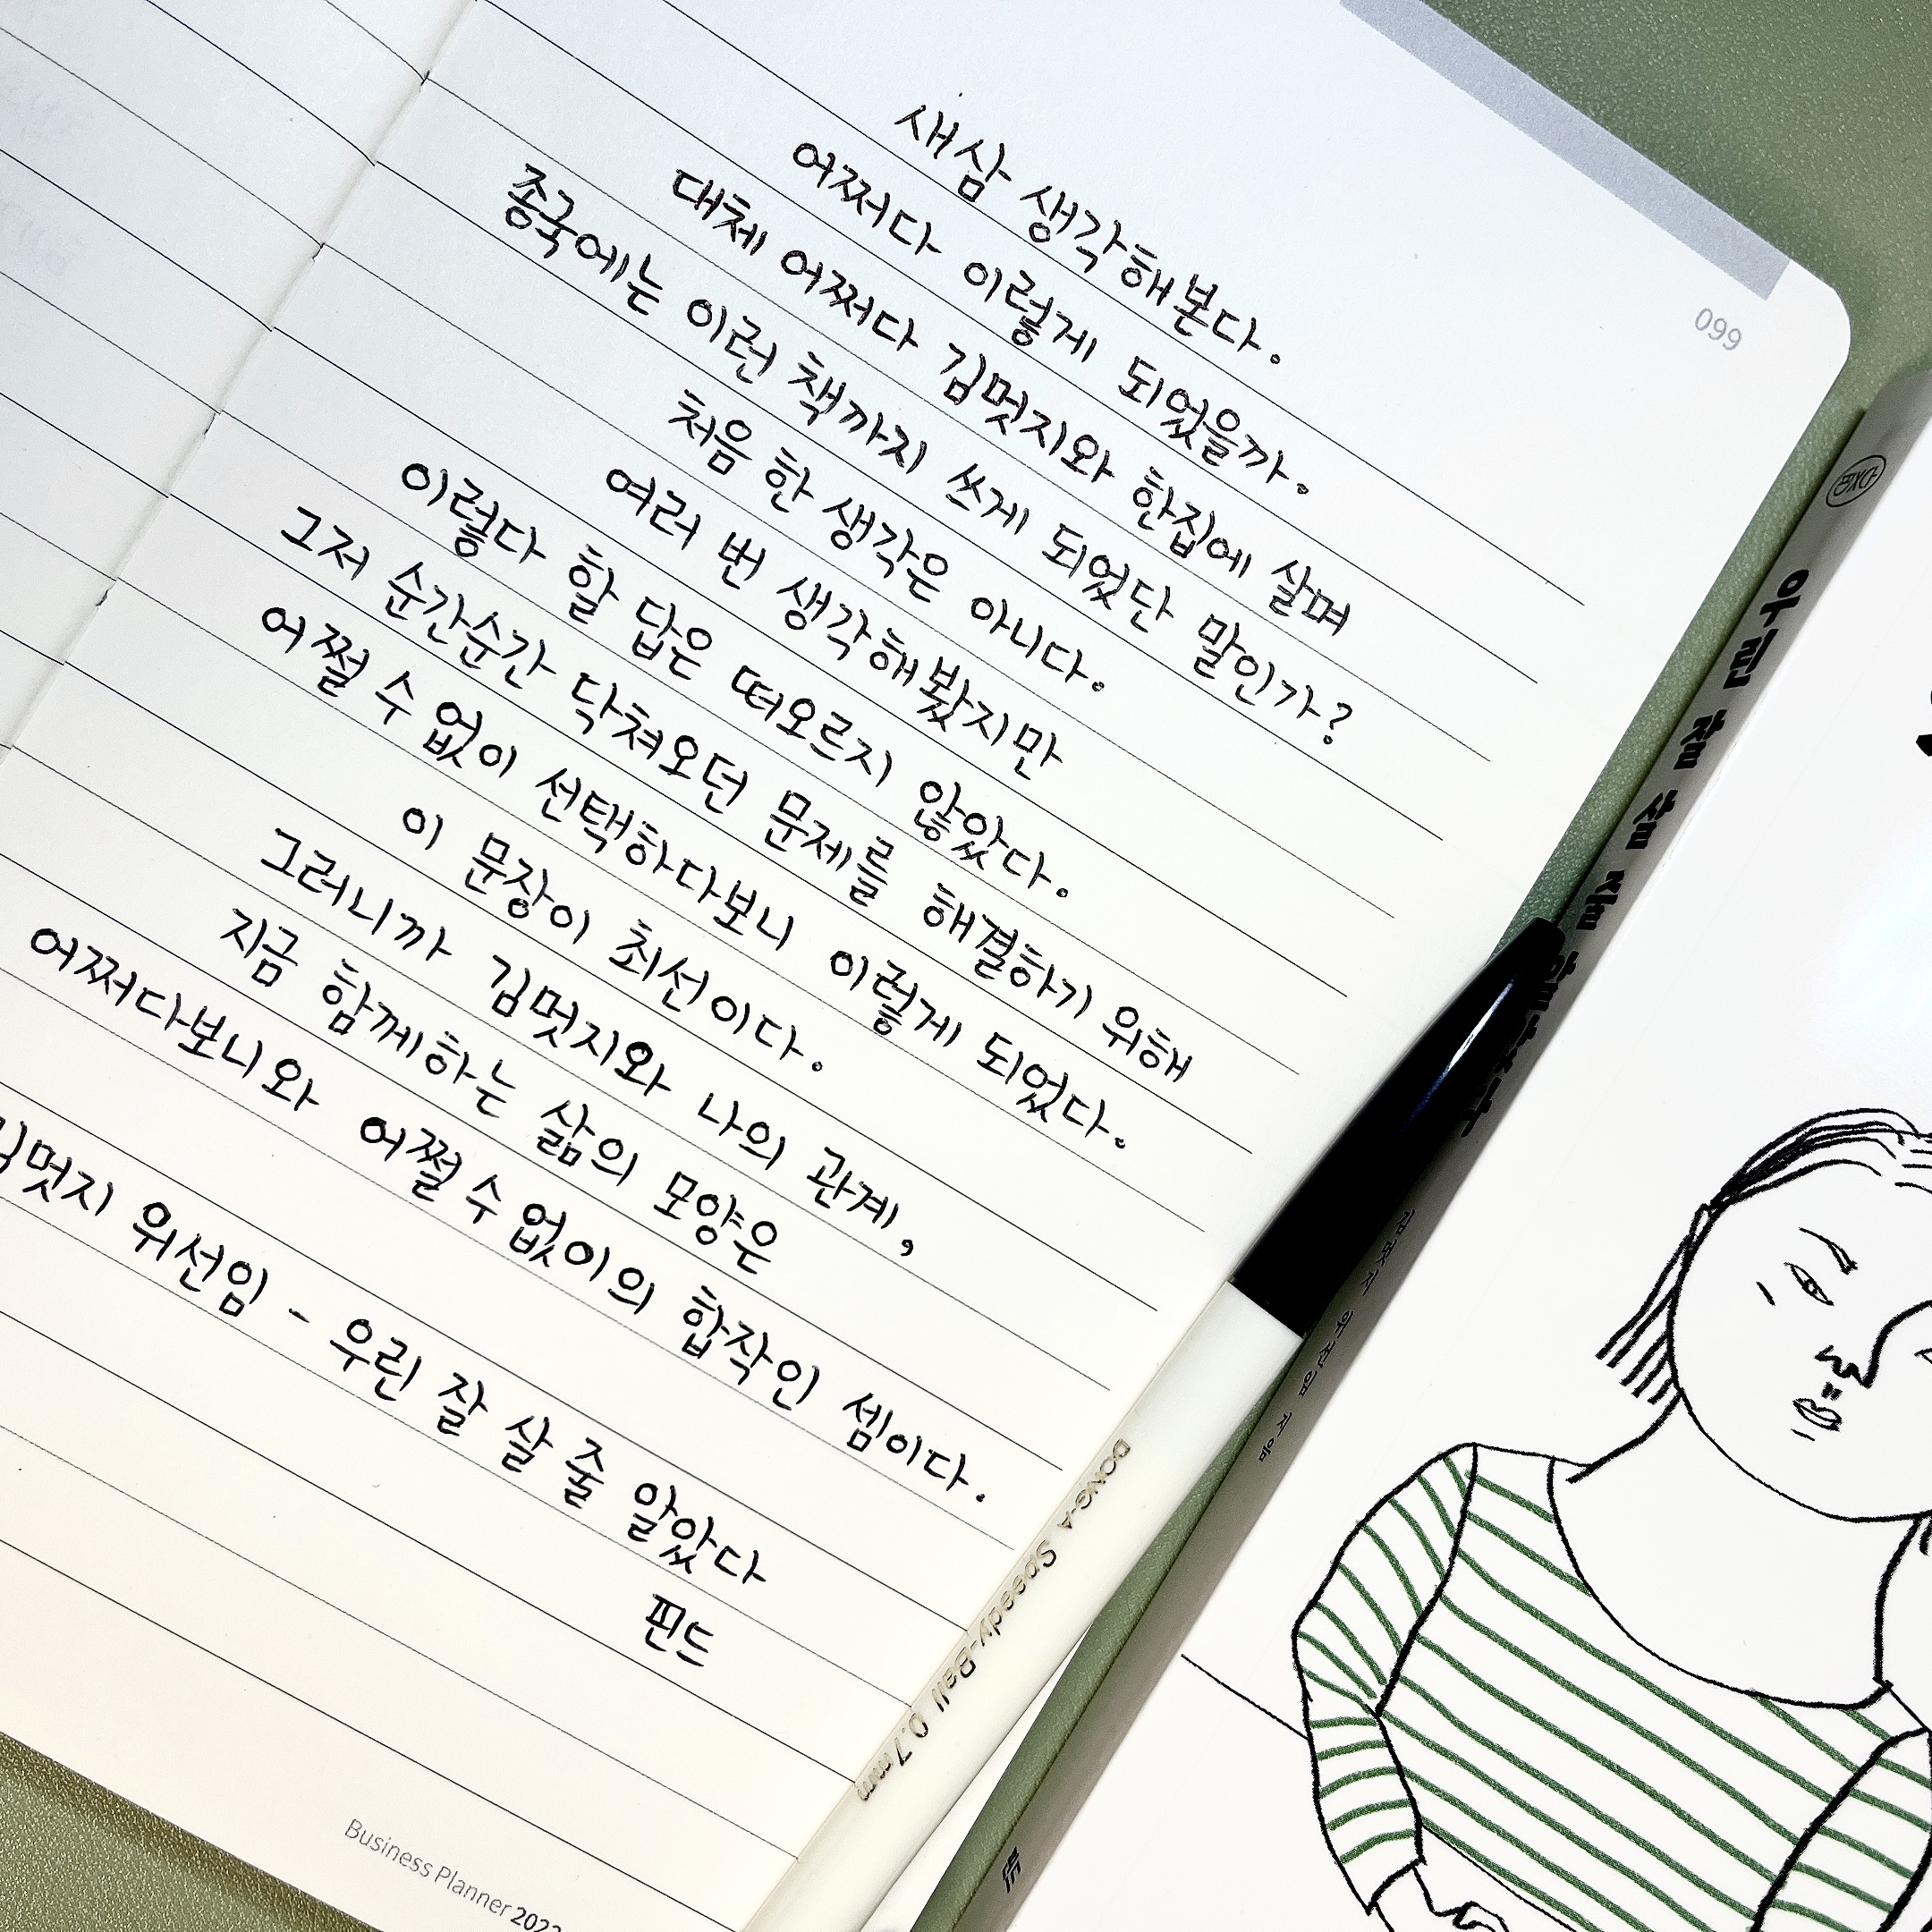 새삼 생각해본다.
어쩌다 이렇게 되었을까.
대체 어쩌다 김멋지와 한집에 살며
종국에는 이런 책까지 쓰게 되었단 말인가?
처음 한 생각은 아니다.
여러 번 생각해봤지만
이렇다 할 답은 떠오르지 않았다.
그저 순간순간 닥쳐오던 문제를 해결하기 위해
어쩔 수 없이 선택하다보니 이렇게 되었다.
이 문장이 최선이다.
그러니까 김멋지와 나의 관계,
지금 함께하는 삶의 모양은
어쩌다보니와 어쩔 수 없이의 합작인 셈이다.
김멋지 위선임 - 우린 잘 살 줄 알았다
핀드
099
Business Planner 2022
DONG-A Speedy-Ball 0.7mm
우린 잘 살 줄
김멋지 위선임 지음